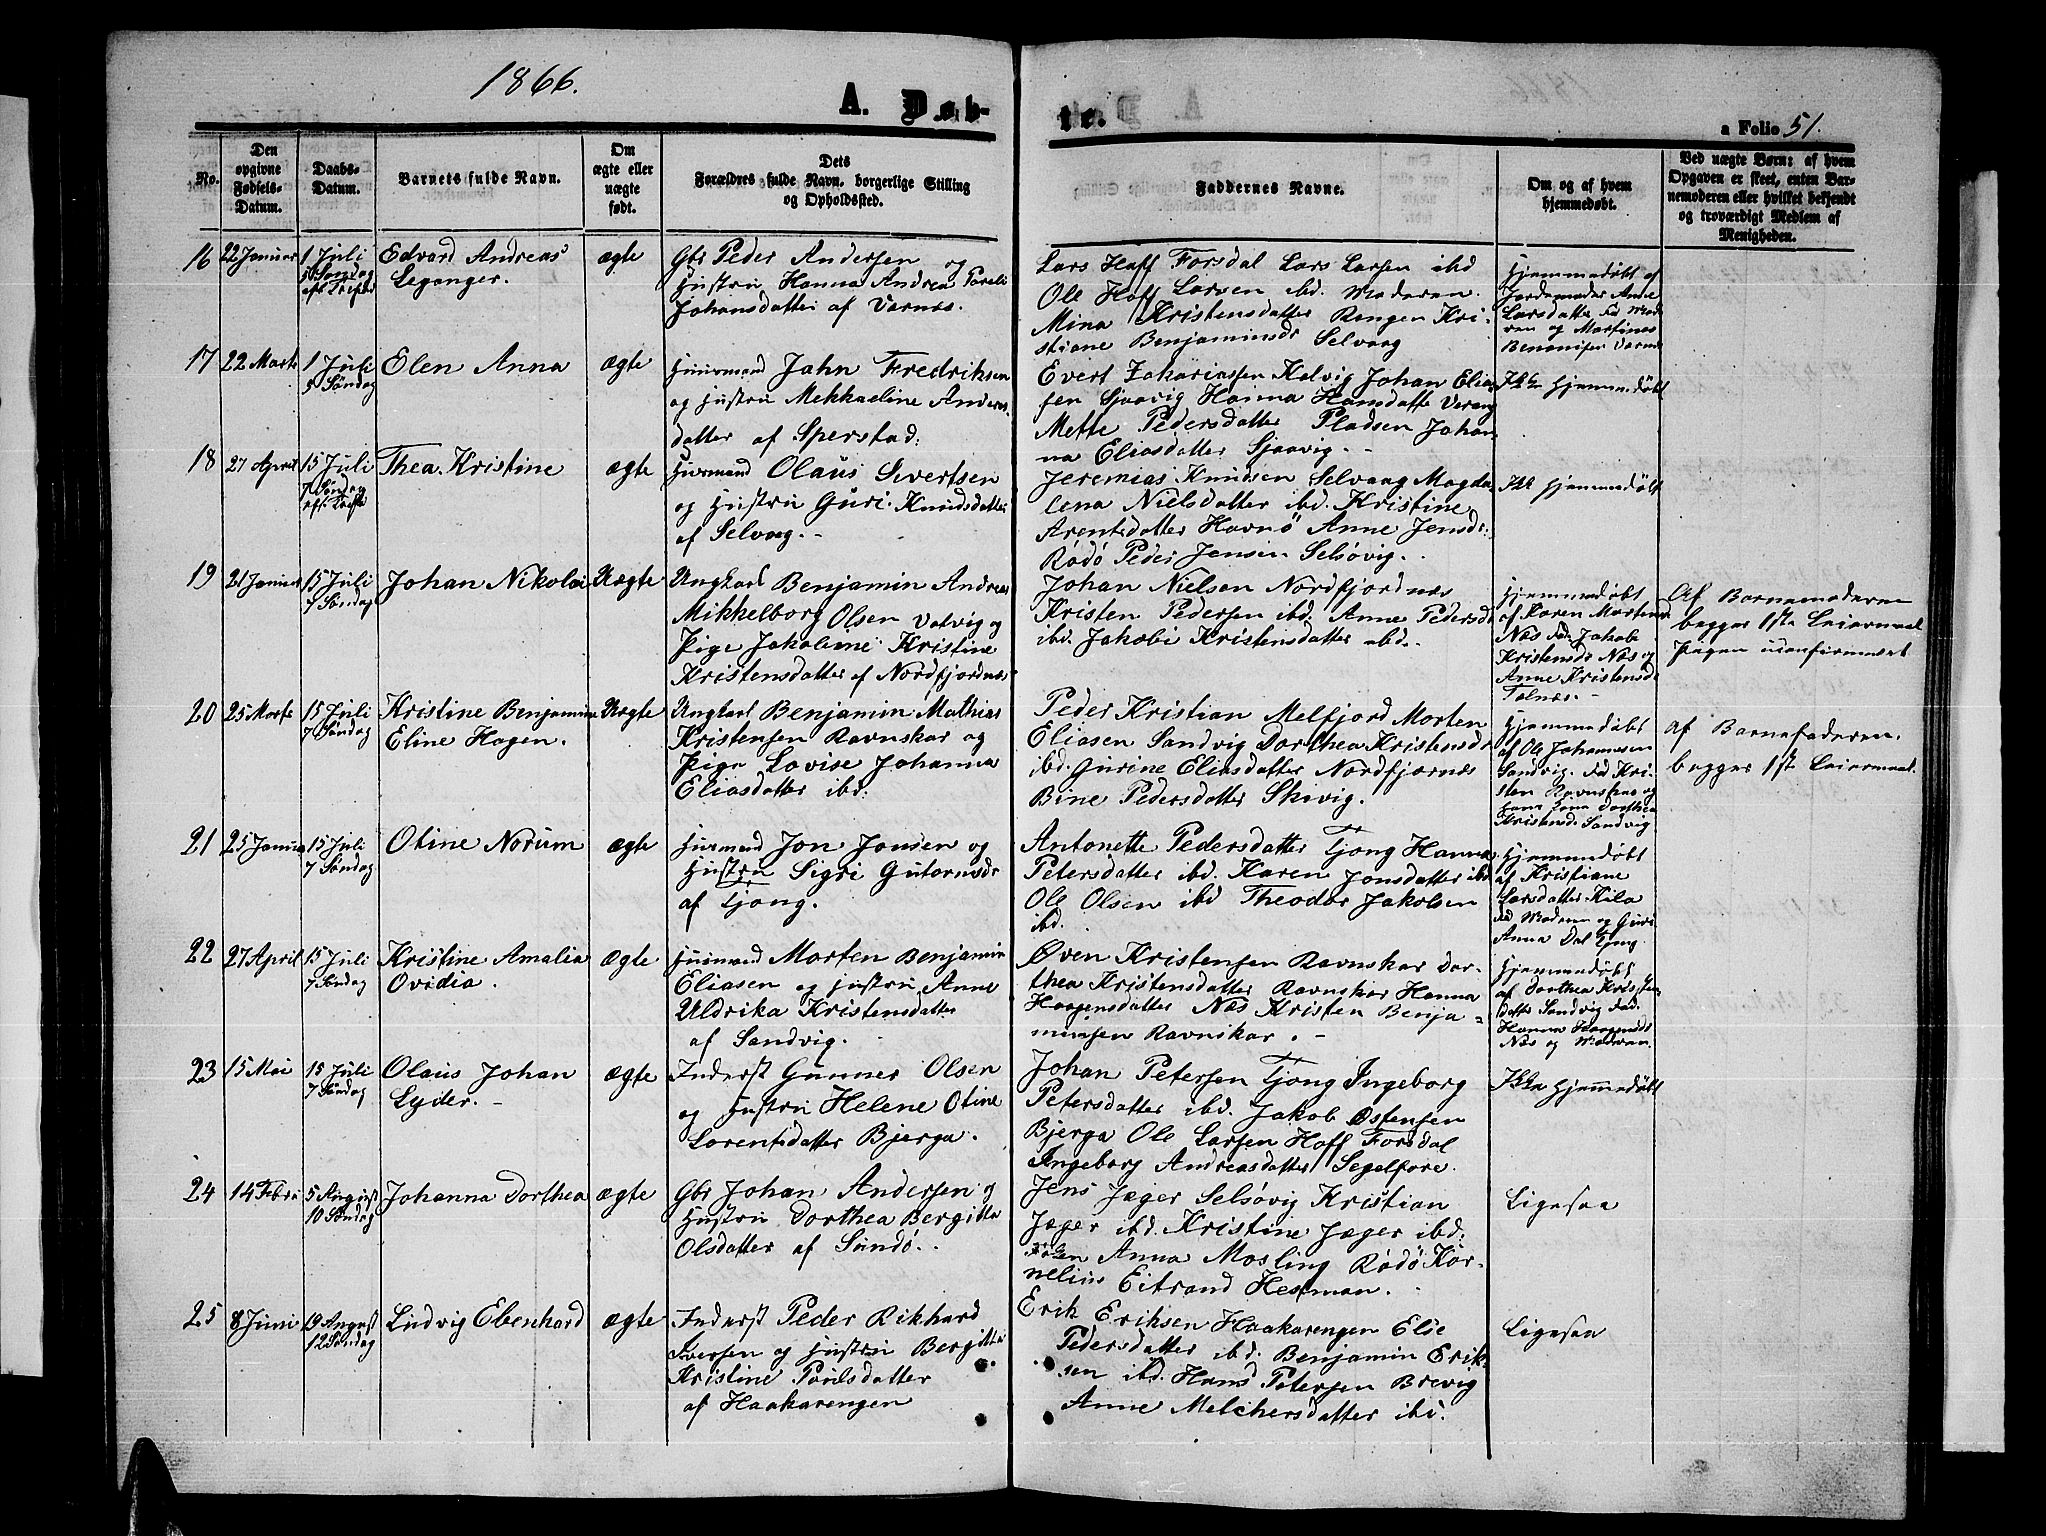 1866.
A. Døb-
te.
a Folio 51.
No.
Den
opgivne
Fødsels-
Datum.
Daabs-
Datum.
Barnets fulde Navn.
Om
ægte eller
uægte
født.
Dets
Forældres fulde Navn, borgerlige Stilling
og Opholdssted.
Faddernes Navne.
Om og af hvem
hjemmedøbt.
Ved uægte Børn: af hvem
Opgaven er skeet, enten Bar-
nemoderen eller hvilket bekjendt
og troværdigt Medlem af
Menigheden.
16
22 Januar
1 Juli
5 Søndag
Edvard Andreas
Leganger.
ægte
Gbr Peder Andersen og
Hustru Hanna Andrea
Johansdatter af Værnes.
Lars Hoff Forsdal Lars Larsen ibd
Ole Hoff Larsen ibd. Moderen.
Mina Kristensdatter Rengen Kri-
stiane Benjaminsdr Selvaag
Hjemmedøbt af
Jordemoder Anne
Larsdatter Fad Mode
ren og Martines
Benonisen Værnes
17
22 Marts
1 Juli
5 Søndag
Elen Anna
ægte
Huusmand Jahn Fredriksen
og Hustru Mekkaeline Anders-
datter af Sperstad.
Evert Zakariassen Kalvig Johan Elia-
sen Sjaavig Hanna Hansdatter Værang
Mette Pedersdatter Pladsen Johan
na Eliasdatter Sjaavig. -
Ikke Hjemmedøbt
18
27 April
15 Juli
7 Søndag
Thea Kristine
ægte
Huusmand Olaus Sivertsen
og Hustru Guri Knudsdatter
af Selvaag. -
Jeremias Knudsen Selvaag Magda-
lena Nielsdatter ibd. Kristine
Arentsdatter Havnø Anne Jensdr:
Rødø Peder Jensen Selsøvig.
Ikke Hjemmedøbt
19
21 Januar
15 Juli
7 Søndag
Johan Nikolai
Uægte
Ungkarl Benjamin Andreas
Mikkelborg Olsen Valvig og
Pige Jakobine Kristine
Kristensdatter af Nordfjordnæs
Johan Nielsen Nordfjordnæs
Kristen Pedersen ibd. Anne Pedersdr
ibd. Jakobi Kristensdatter ibd.
Hjemmedøbt
af Karen Mortensd
Næs Fad. Jakobi
Kristensdr Næs og
Anne Kristensdr
Telnæs. -
Af Barnemoderen
begges 1ste Leiermaal
Pigen ukonfirmeret
20
25 Marts
15 Juli
7 Søndag
Kristine Benjamine
Eline Hagen.
Uægte
Ungkarl Benjamin Mathias
Kristensen Ravnskar og
Pige Lovise Johanna
Eliasdatter ibd:
Peder Kristian Melfjord Morten
Eliasen Sandvig Dorthea Kristensdr
ibd. Gurine Eliasdatter Nordfjornæs
Bine Pedersdatter Skivig.
Hjemmedøbt
af Ole Johannesen
Sandvig. Fad Kri-
sten Ravnskar og
Dorthea
Kristensd. Sandvig
Af Barnefaderen.
begges 1ste Leiermaal.
21
25 Januar
15 Juli
7 Søndag
Otine Norum
ægte
Huusmand Jon Jonsen og
Hustru Sigri Gutormsdr
af Tjong.
Antonette Pedersdatter Tjong Hanna
Petersdatter ibd. Karen Jonsdatter ibd
Ole Olsen ibd Theodor Jakobsen
ibd.
Hjemmedøbt
af Kristiane
Larsdatter Kila
Fad Moderen og Guri
Anna Dal Tjong.
22
27 April
15 Juli
7 Søndag
Kristine Amalia
Ovidia.
ægte
Huusmand Morten Benjamin
Eliasen og Hustru Anne
Uldrika Kristensdatter
af Sandvig.
Øven Kristensen Ravnskar Dor-
thea Kristensdatter Ravnskar Hanna
Haagensdatter Næs Kristen Benja-
minsen Ravnskar. -
Hjemmedøbt
af Dorthea Kristens-
datter Sandvig Fad.
Hanna Haagensdr
Næs og Moderen.
23
15 Mai
15 Juli
7 Søndag
Olaus Johan
Lyder. -
ægte
Inderst Gunner Olsen
og Hustru Helene Otine
Lorentsdatter Bjerga.
Johan Petersen Tjong Ingeborg
Petersdatter ibd. Jakob Østensen
Bjerga Ole Larsen Hoff Forsdal
Ingeborg Andreasdatter Segelfore.
Ikke Hjemmedøbt
24
14 Febru
5 August
10 Søndag
Johanna Dorthea
ægte
Gbr Johan Andersen og
Hustru Dorthea Bergitta
Olsdatter af Sundø. -
Jens Jæger Selsøvig Kristian
Jæger ibd. Kristine Jæger ibd:
Anna Mosling Rødø Kor-
nelius Eitrand Hestman.
Ligesaa
25
8 Juni
19 August
12 Søndag
Ludvig Ebenhard
ægte
Inderst Peder Rikhard
Iversen og Hustru Bergitta
Kristine Poulsdatter
af Haakarengen
Erik Eriksen Haakarengen Elie
Pedersdatter ibd. Benjamin Erik-
sen ibd. Hans Petersen Brevig
Anne Melchersdatter ibd.
Ligesaa